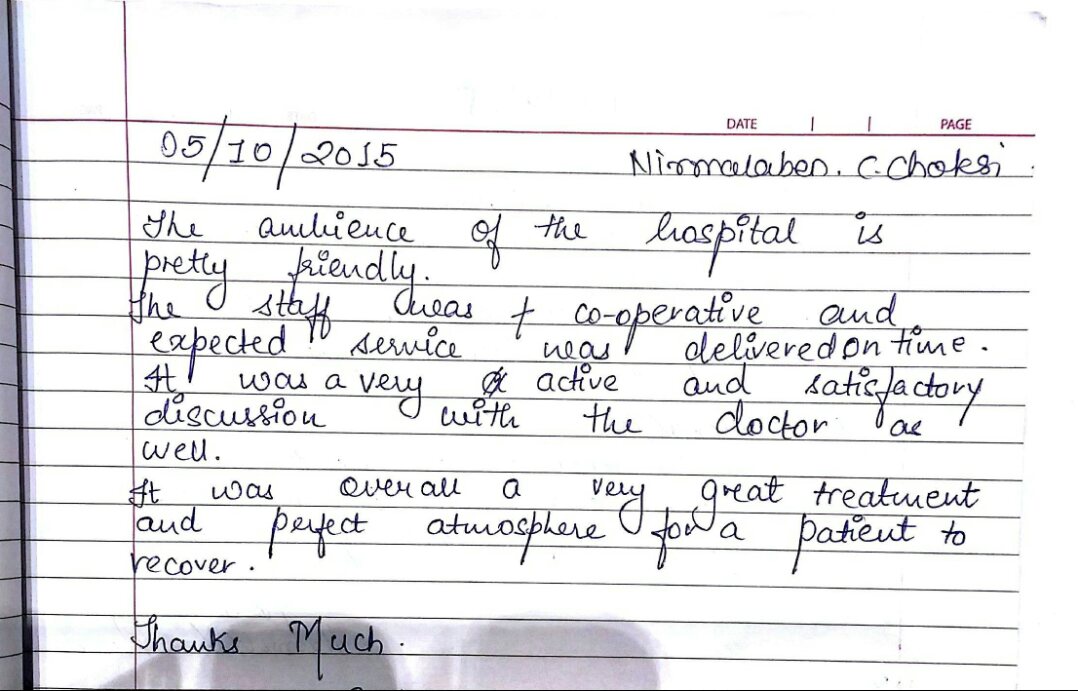 DATE | | PAGE
05/10/2015 Nirmalaben. C. Choksi
The ambience of the hospital is
pretty friendly.
The staff was co-operative and
expected service was delivered on time.
It was a very active and satisfactory
discussion with the doctor as
well.
It was over all a very great treatment
and perfect atmosphere for a patient to
recover.
Thanks Much.